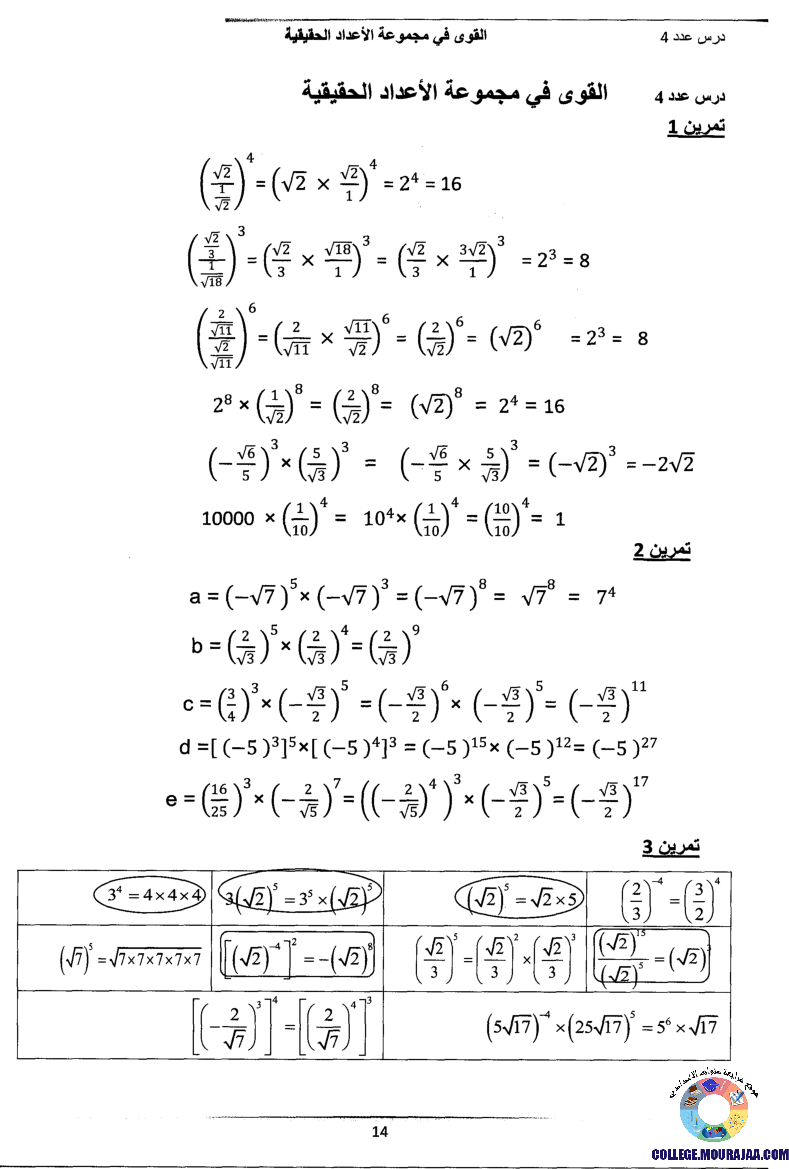 درس عدد 4 القوى في مجموعة الأعداد الحقيقية
درس عدد 4 القوى في مجموعة الأعداد الحقيقية
تمرين 1
(√2/(1/√2))⁴ = (√2 × √2/1)⁴ = 2⁴ = 16
((√2/3)/(1/√18))³ = (√2/3 × √18/1)³ = (√2/3 × 3√2/1)³ = 2³ = 8
((2/√11)/(√2/√11))⁶ = (2/√11 × √11/√2)⁶ = (2/√2)⁶ = (√2)⁶ = 2³ = 8
2⁸ × (1/√2)⁸ = (2/√2)⁸ = (√2)⁸ = 2⁴ = 16
(−√6/5)³ × (5/√3)³ = (−√6/5 × 5/√3)³ = (−√2)³ = −2√2
10000 × (1/10)⁴ = 10⁴ × (1/10)⁴ = (10/10)⁴ = 1
تمرين 2
a = (−√7)⁵ × (−√7)³ = (−√7)⁸ = √7⁸ = 7⁴
b = (2/√3)⁵ × (2/√3)⁴ = (2/√3)⁹
c = (3/4)³ × (−√3/2)⁵ = (−√3/2)⁶ × (−√3/2)⁵ = (−√3/2)¹¹
d =[ (−5 )³]⁵×[ (−5 )⁴]³ = (−5 )¹⁵× (−5 )¹²= (−5 )²⁷
e = (16/25)³ × (−2/√5)⁷ = ((−2/√5)⁴)³ × (−√3/2)⁵ = (−√3/2)¹⁷
تمرين 3
3⁴ = 4×4×4 3(√2)⁵ = 3⁵×(√2)⁵ (√2)⁵ = √2×5 (2/3)⁻⁴ = (3/2)⁴
(√7)⁵ = √(7×7×7×7×7) [(√2)⁻⁴]² = −(√2)⁸ (√2/3)⁵ = (√2/3)² × (√2/3)³ (√2)¹⁵/(√2)⁵ = (√2)³
[(−2/√7)³]⁴ = [(2/√7)⁴]³ (5√17)⁻⁴ × (25√17)⁵ = 5⁶ × √17
موقع مراجعة
14
COLLEGE.MOURAJAA.COM